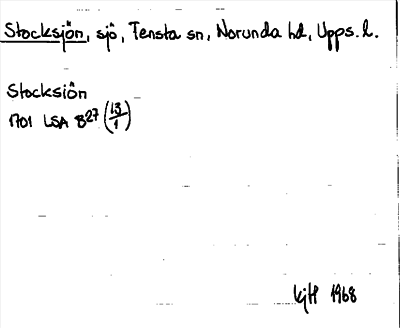 Stocksjön, sjö, Tensta sn, Norunda hd, Upps. l.
Stocksiön
1701 LSA B27 (13/1)
KjH 1968